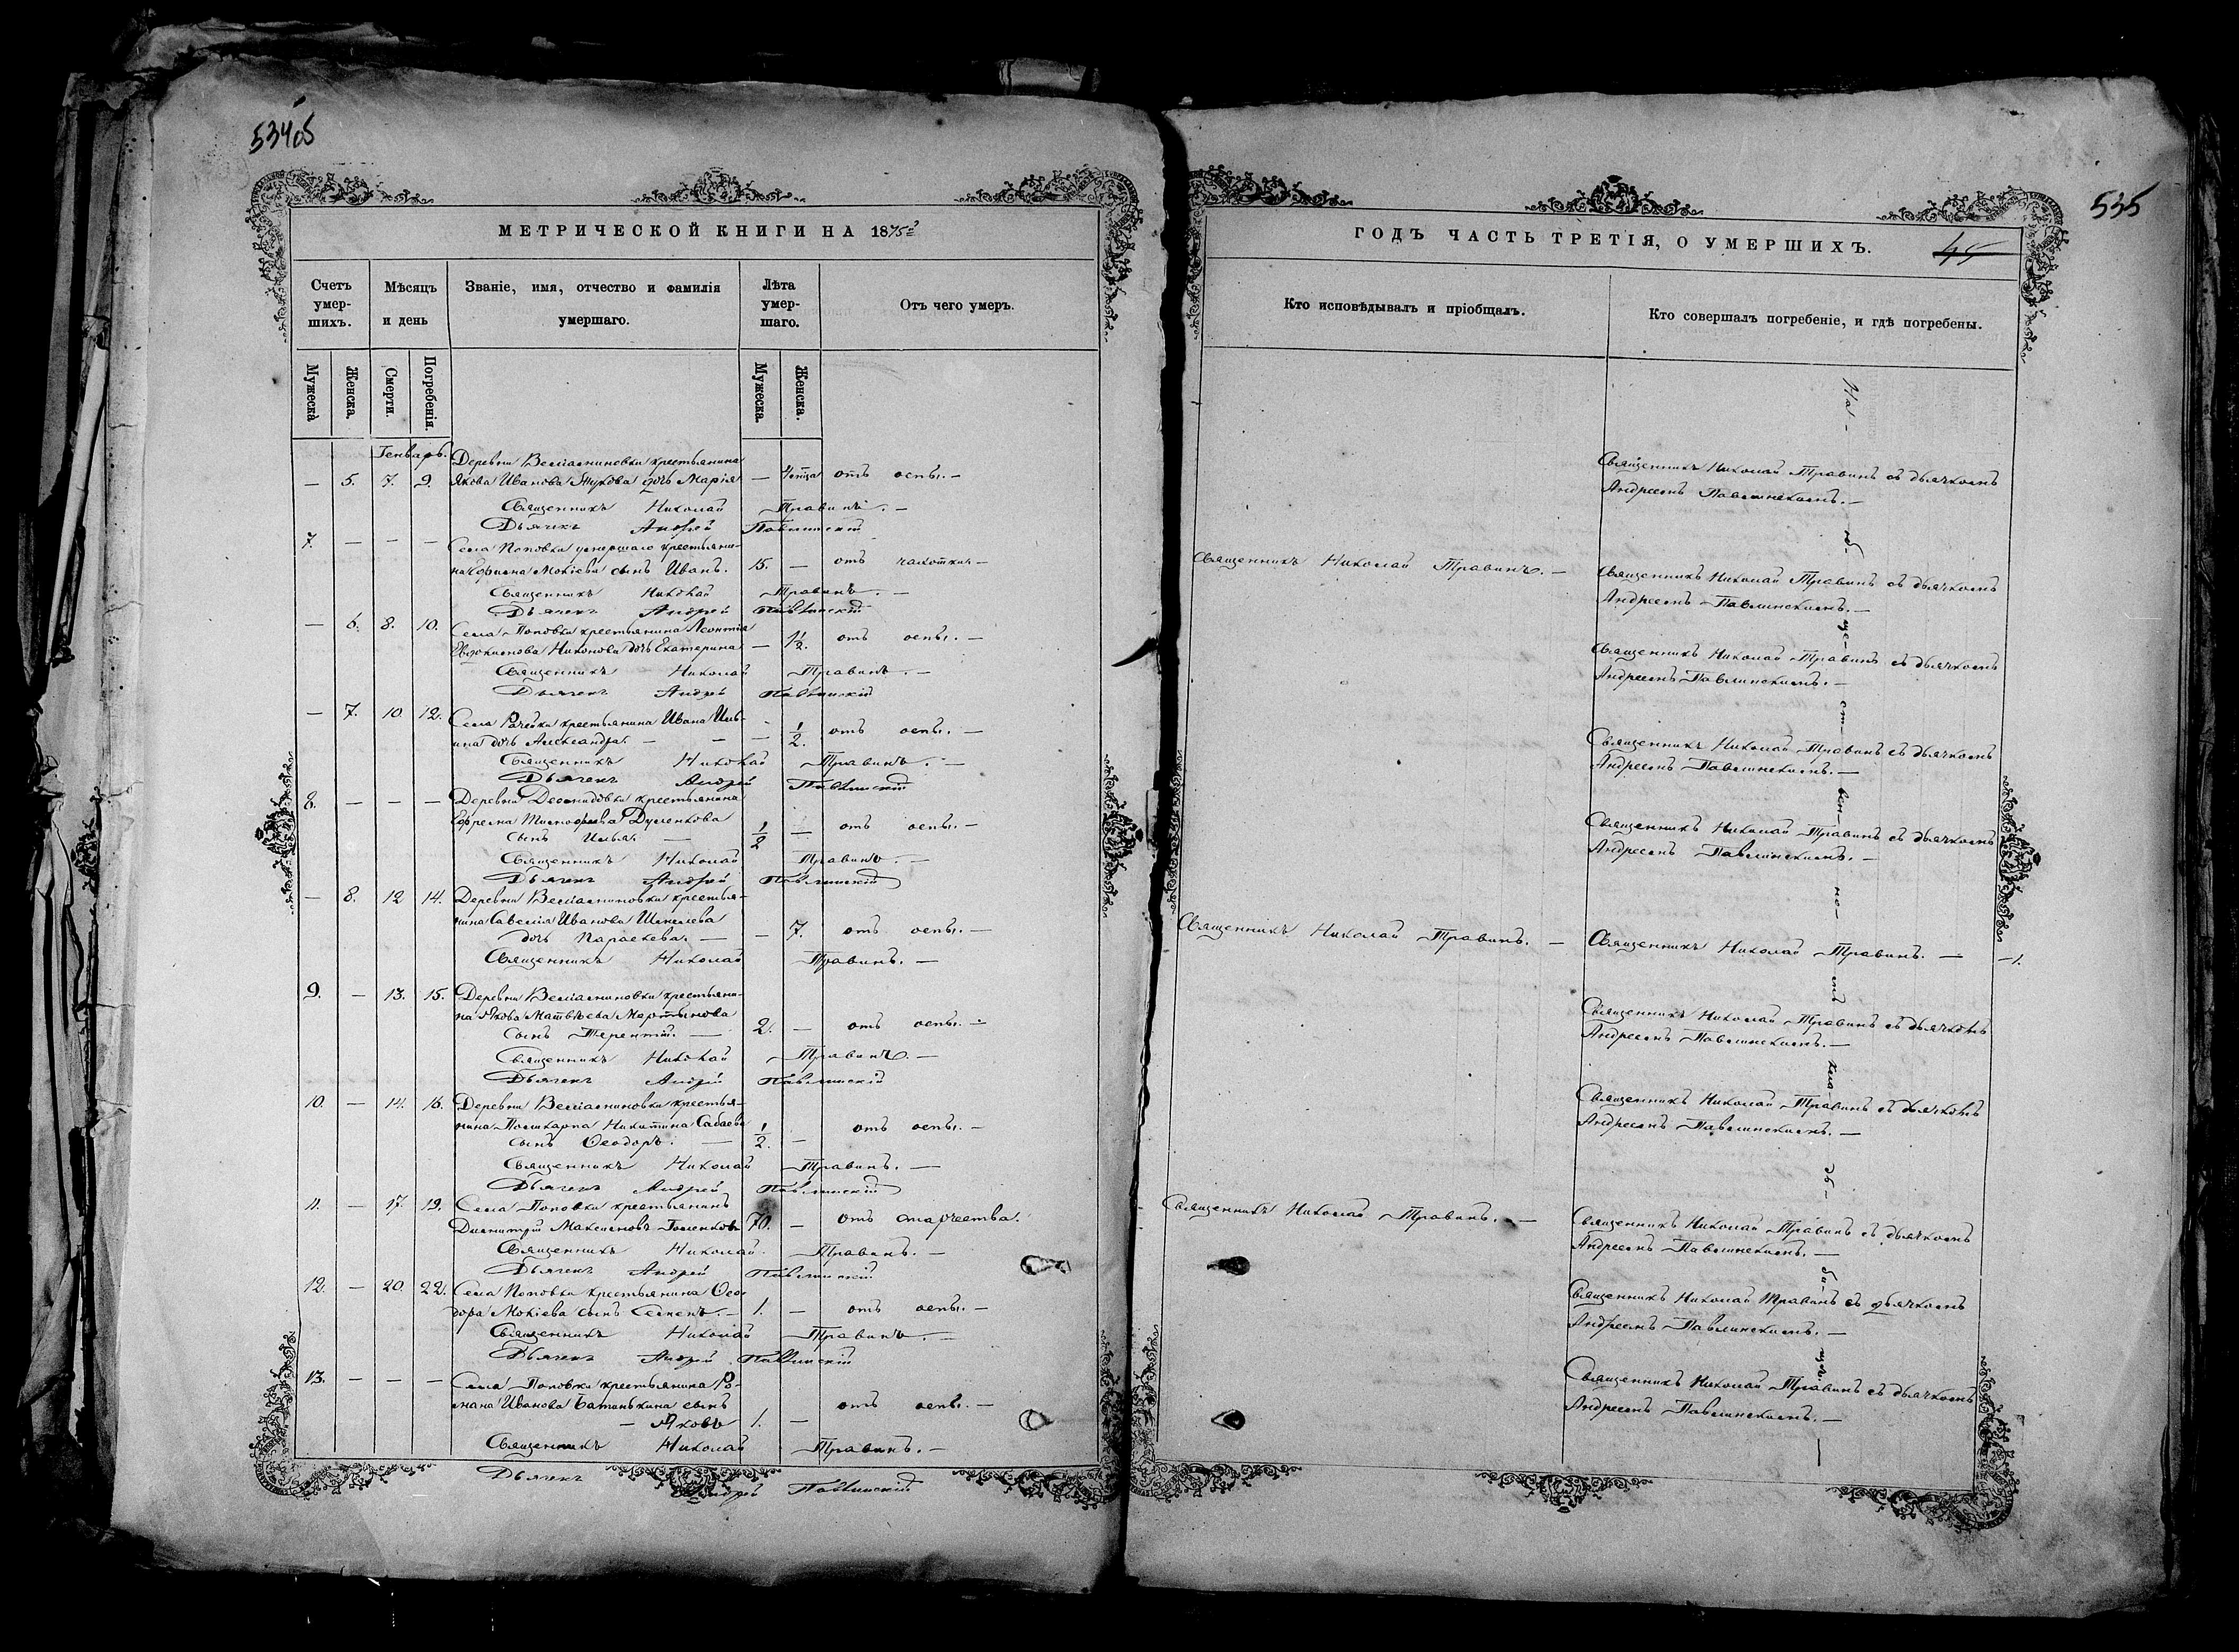 534об
МЕТРИЧЕСКОЙ КНИГИ НА 1875й
Счетъ умер-шихъ.
Мѣсяцъ и день
Званіе, имя, отчество и фамилія умершаго.
Лѣта умер-шаго.
Отъ чего умеръ.
Мужеска
Женска.
Смерти.
Погребенія.
Мужеска.
Женска.
Генварь.
Деревни крестьянина
— 5. 7. 9. Якова Иванова дочь Марія — отъ оспы. —
Священникъ Николай Травинъ. —
Дьячекъ Андрей Павлинскій
7. — — — Села Поповки умершаго крестьяни-
на Ефрема Мокіева сынъ Иванъ. 15. — отъ чахотки —
Священникъ Николай Травинъ. —
Дьячекъ Андрей Павлинскій
— 6. 8. 10. Села Поповки крестьянина Леонтія
Никонова дочь Екатерина — 1½. отъ оспы. —
Священникъ Николай Травинъ. —
Дьячекъ Андрей Павлинскій
— 7. 10. 12. Села Рачейки крестьянина Ивана Иль-
ина дочь Александра. — — — ½. отъ оспы. —
Священникъ Николай Травинъ. —
Дьячекъ Андрей Павлинскій
8. — — — Деревни крестьянина
Ефрема Тимофеева
сынъ Илья. — ½ — отъ оспы. —
Священникъ Николай Травинъ. —
Дьячекъ Андрей Павлинскій
— 8. 12 14. Деревни крестья-
нина Савелія Иванова Шмелева
дочь Параскева. — — 7. отъ оспы. —
Священникъ Николай Травинъ. —
9. — 13. 15. Деревни крестьяни-
на Якова Матвѣева Мартынова
сынъ Терентій. — 2. — отъ оспы. —
Священникъ Николай Травинъ. —
Дьячекъ Андрей Павлинскій
10. — 14. 16. Деревни крестья-
нина Поликарпа Никитина Сабаева
сынъ Ѳеодоръ. — ½. — отъ оспы. —
Священникъ Николай Травинъ. —
Дьячекъ Андрей Павлинскій
11. — 17. 19. Села Поповки крестьянинъ
Димитрій Максимовъ 70. — отъ старчества.
Священникъ Николай Травинъ. —
Дьячекъ Андрей Павлинскій
12. — 20. 22. Села Поповки крестьянина Ѳео-
дора Мокіева сынъ Семенъ. — 1. — отъ оспы. —
Священникъ Николай Травинъ. —
Дьячекъ Андрей Павлинскій
13. — — — Села Поповки крестьянина Ро-
мана Иванова Батинькина сынъ отъ оспы. —
— Яковъ 1. —
Священникъ Николай Травинъ. —
Дьячекъ Андрей Павлинскій
535
ГОДЪ ЧАСТЬ ТРЕТІЯ, О УМЕРШИХЪ.
45
Кто исповѣдывалъ и пріобщалъ.
Кто совершалъ погребеніе, и гдѣ погребены.
Священникъ Николай Травинъ съ дьячкомъ
Андреемъ Павлинскимъ. —
Священникъ Николай Травинъ. —
Священникъ Николай Травинъ съ дьячкомъ
Андреемъ Павлинскимъ. —
Священникъ Николай Травинъ съ дьячкомъ
Андреемъ Павлинскимъ. —
Священникъ Николай Травинъ съ дьячкомъ
Андреемъ Павлинскимъ. —
Священникъ Николай Травинъ съ дьячкомъ
Андреемъ Павлинскимъ. —
Священникъ Николай Травинъ. —
Священникъ Николай Травинъ. — — 1.
Священникъ Николай Травинъ съ дьячкомъ
Андреемъ Павлинскимъ. —
Священникъ Николай Травинъ съ дьячкомъ
Андреемъ Павлинскимъ. —
Священникъ Николай Травинъ. —
Священникъ Николай Травинъ съ дьячкомъ
Андреемъ Павлинскимъ. —
Священникъ Николай Травинъ съ дьячкомъ
Андреемъ Павлинскимъ. —
Священникъ Николай Травинъ съ дьячкомъ
Андреемъ Павлинскимъ. —